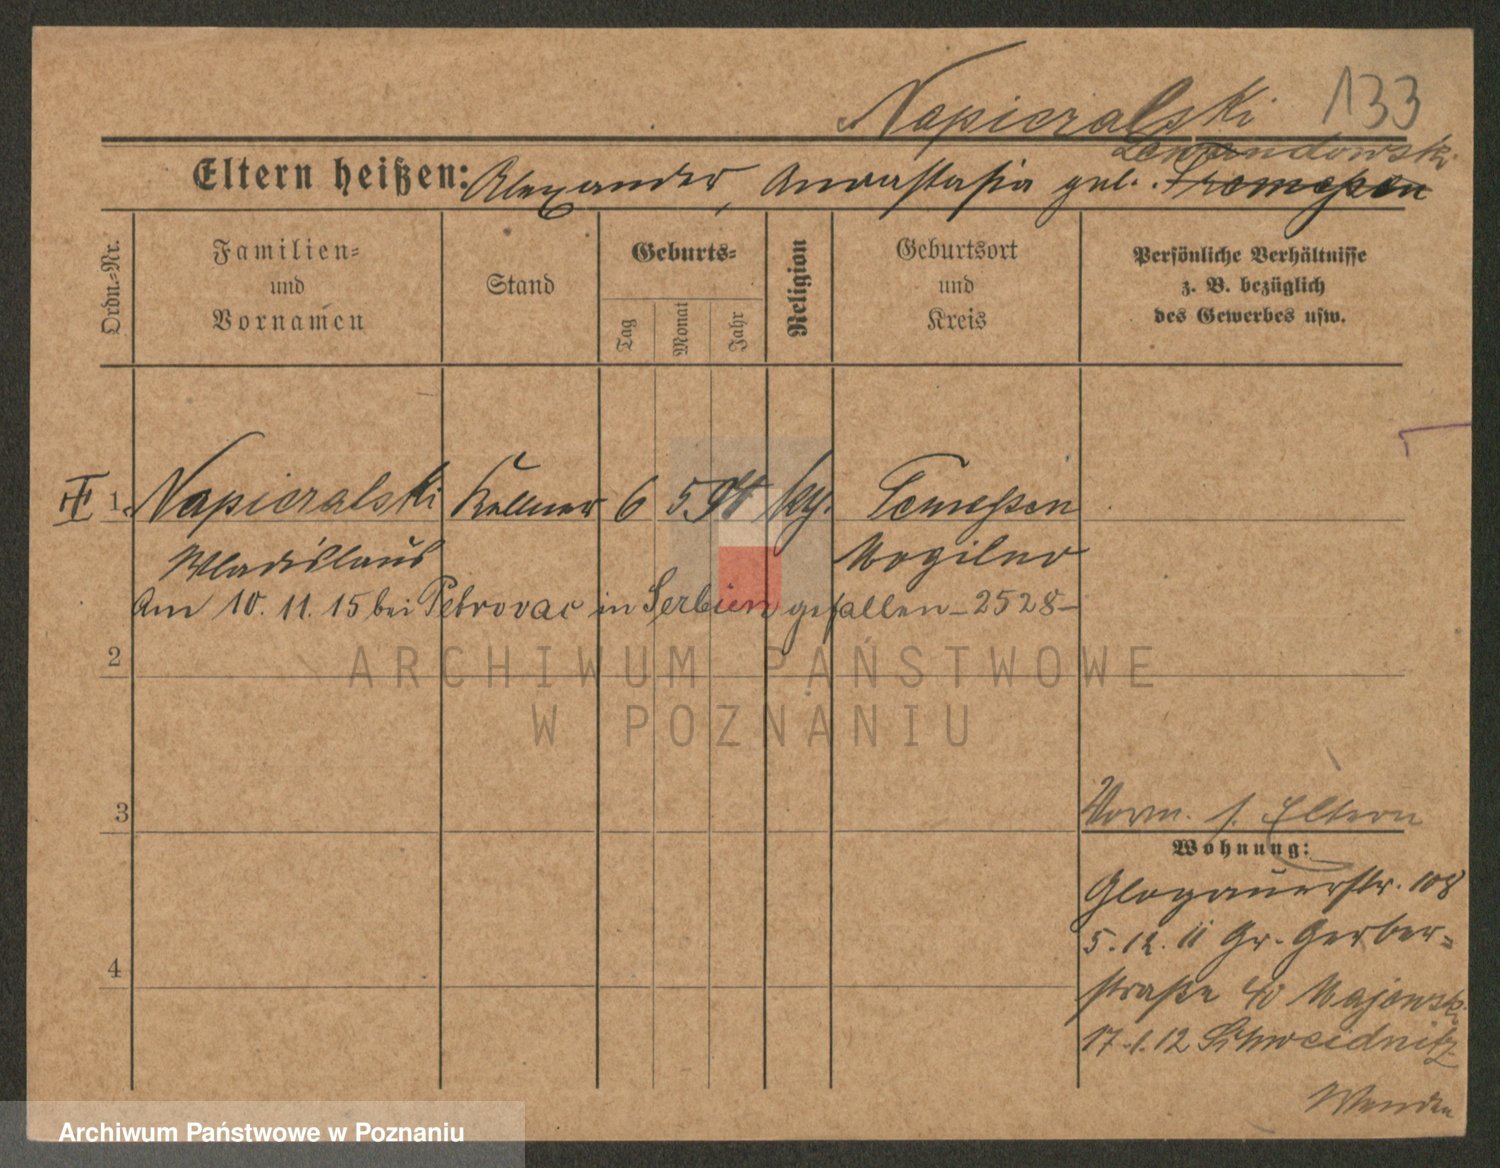 133
Napieralski
Lewandowski
Eltern heißen: Alexander, Anastasia geb. Tremessen
Ordn.=Nr.
Familien=
und
Vornamen
Stand
Geburts=
Tag
Monat
Jahr
Religion
Geburtsort
und
Kreis
Persönliche Verhältnisse
z. B. bezüglich
des Gewerbes usw.
1. Napieralski Kellner 6 5 94 Tremessen
Wladislaus Mogilno
Am 10. 11. 15 bei Petrovac in Serbien gefallen – 2528 –
2
ARCHIWUM PAŃSTWOWE
W POZNANIU
3
Vorm. s. Eltern
Wohnung:
Glogauerstr. 108
5. 12. 11 Gr. Gerber=
straße 40 Majewski
4
17. 1. 12 Schweidnitz
Archiwum Państwowe w Poznaniu